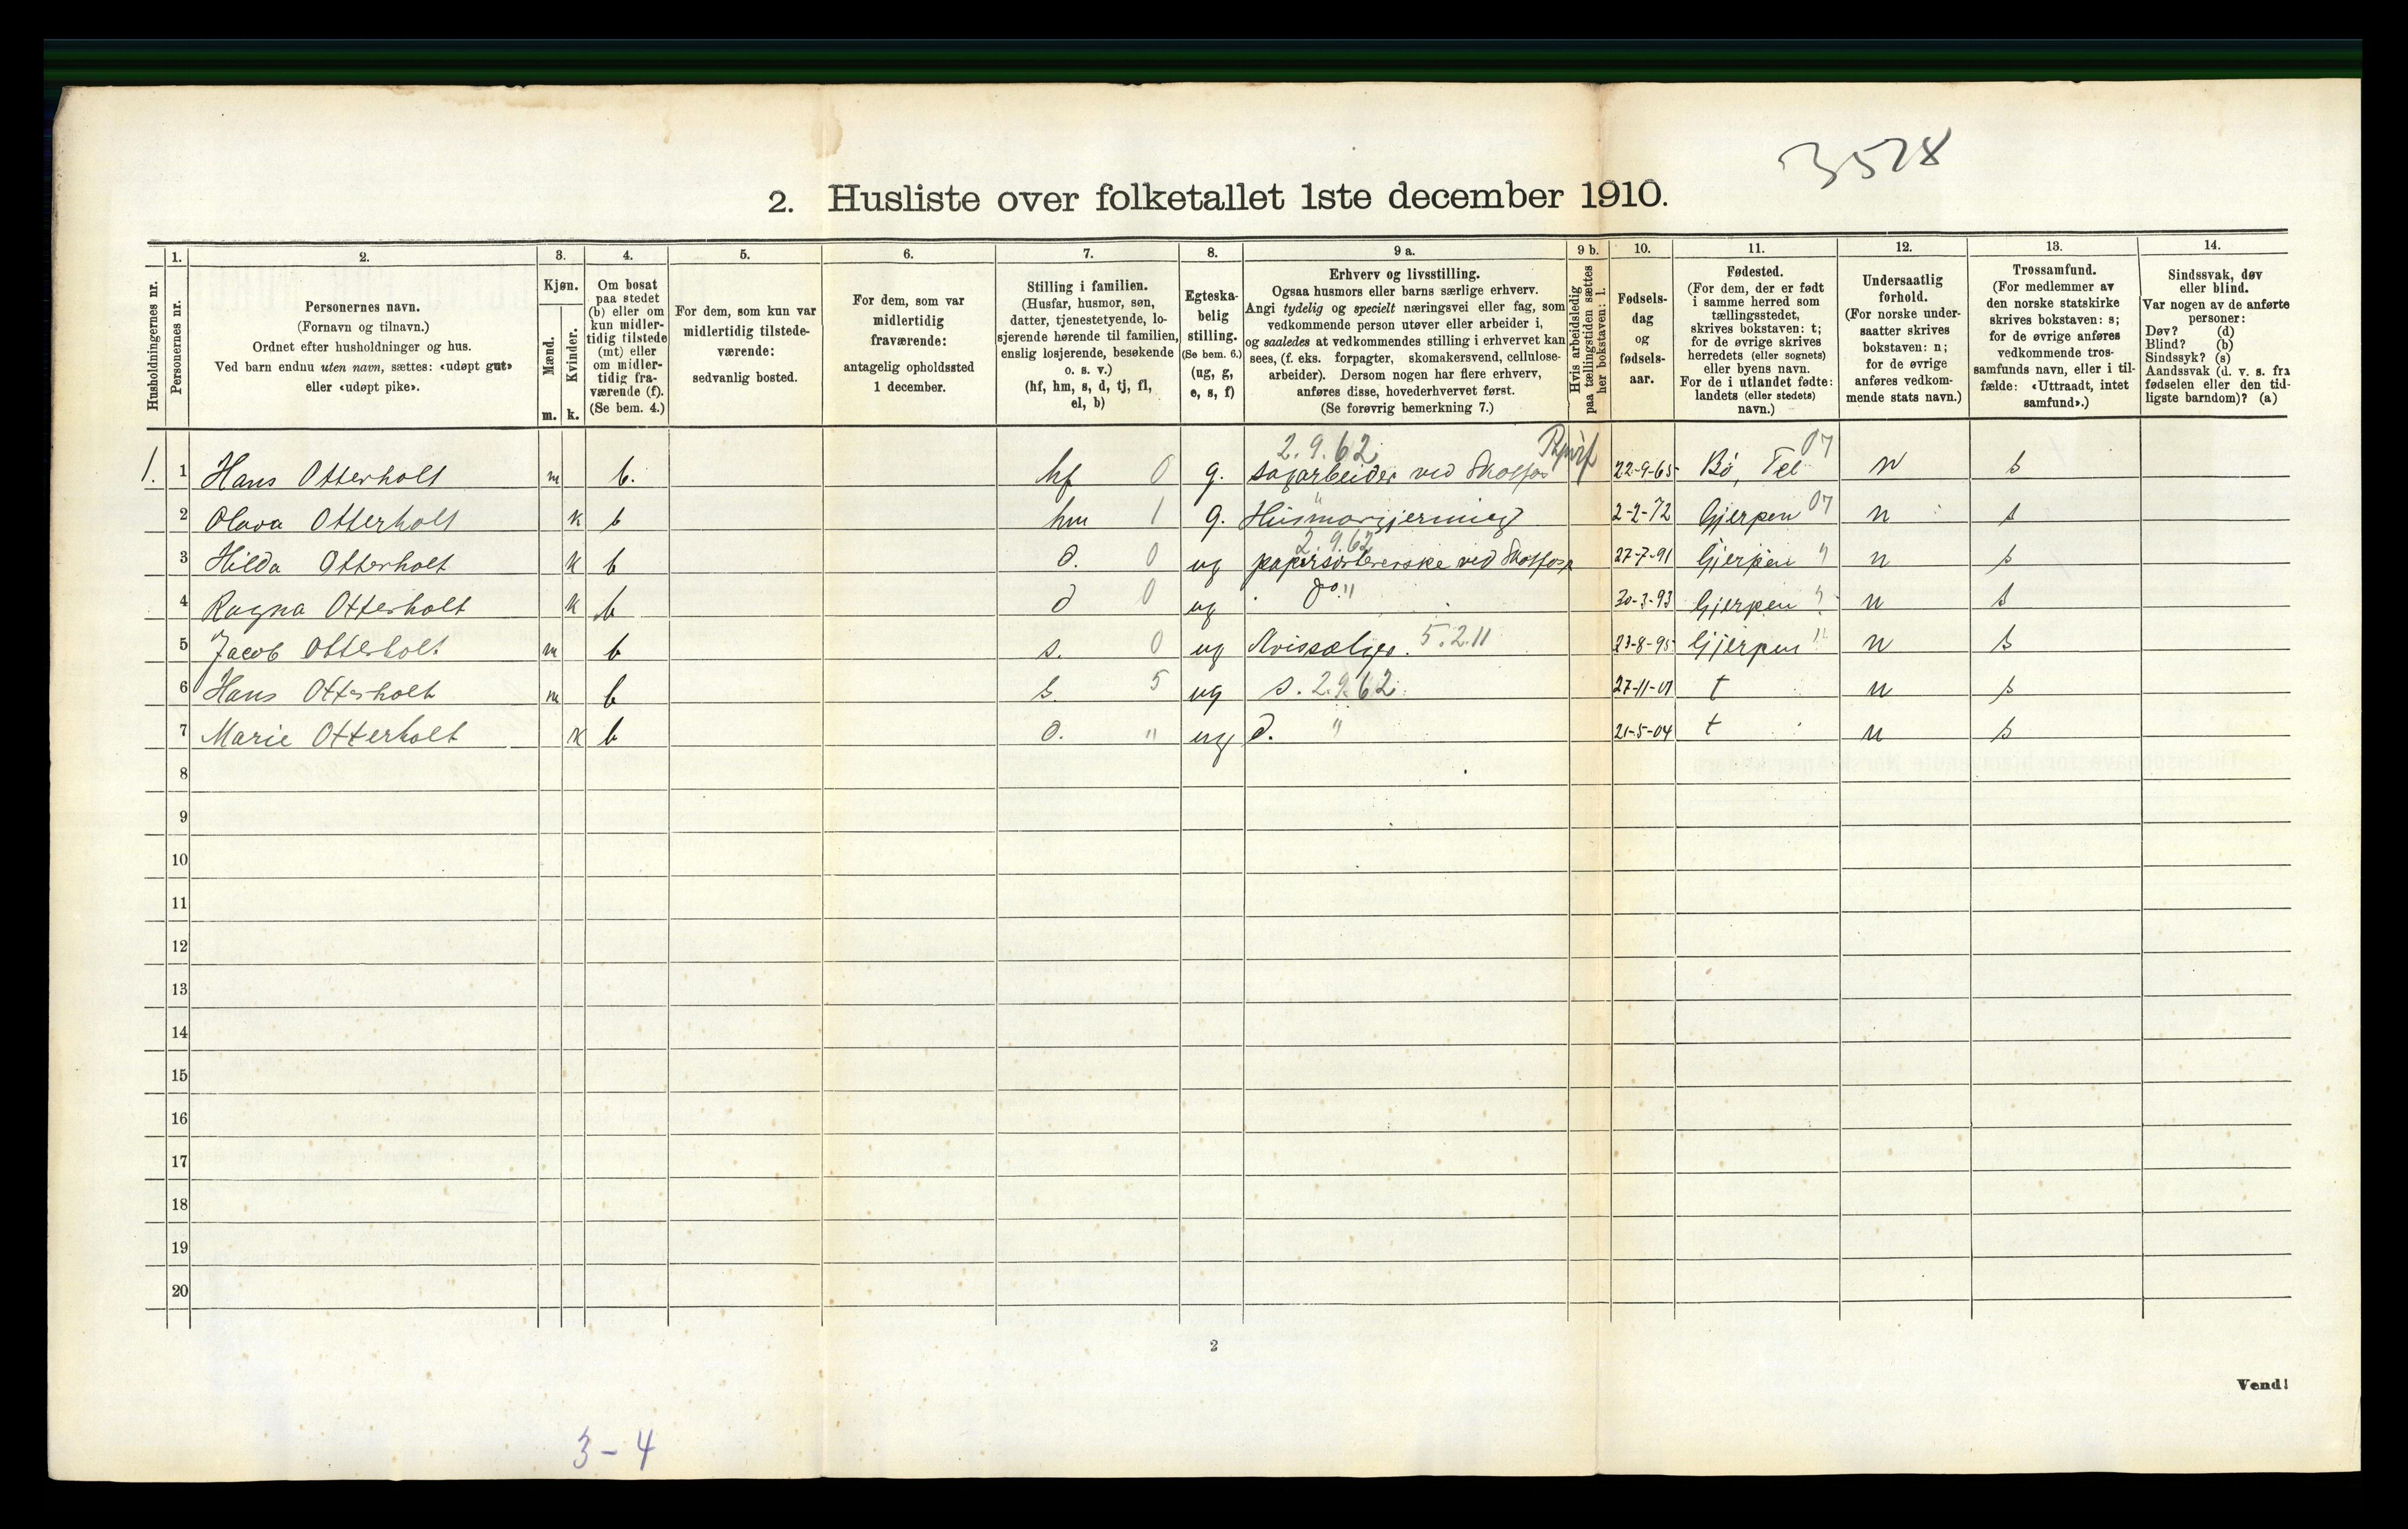 3528
2. Husliste over folketallet 1ste december 1910.
Husholdningernes nr.
1.
Personernes nr.
2.
Personernes navn.
(Fornavn og tilnavn.)
Ordnet efter husholdninger og hus.
Ved barn endnu uten navn, sættes: «udøpt gut»
eller «udøpt pike».
3.
Kjøn.
Mænd.
Kvinder.
m. k.
4.
Om bosat
paa stedet
(b) eller om
kun midler-
tidig tilstede
(mt) eller
om midler-
tidig fra-
værende (f).
(Se bem. 4.)
5.
For dem, som kun var
midlertidig tilstede-
værende:
sedvanlig bosted.
6.
For dem, som var
midlertidig
fraværende:
antagelig opholdssted
1 december.
7.
Stilling i familien.
(Husfar, husmor, søn,
datter, tjenestetyende, lo-
sjerende hørende til familien,
enslig losjerende, besøkende
o. s. v.)
(hf, hm, s, d, tj, fl,
el, b)
8.
Egteska-
belig
stilling.
(Se bem. 6.)
(ug, g,
e, s, f)
9 a.
Erhverv og livsstilling.
Ogsaa husmors eller barns særlige erhverv.
Angi tydelig og specielt næringsvei eller fag, som
vedkommende person utøver eller arbeider i,
og saaledes at vedkommendes stilling i erhvervet kan
sees, (f. eks. forpagter, skomakersvend, cellulose-
arbeider). Dersom nogen har flere erhverv,
anføres disse, hovederhvervet først.
(Se forøvrig bemerkning 7.)
9 b.
Hvis arbeidsledig
paa tællingstiden sættes
her bokstaven: l.
10.
Fødsels-
dag
og
fødsels-
aar.
11.
Fødested.
(For dem, der er født
i samme herred som
tællingsstedet,
skrives bokstaven: t;
for de øvrige skrives
herredets (eller sognets)
eller byens navn.
For de i utlandet fødte:
landets (eller stedets)
navn.)
12.
Undersaatlig
forhold.
(For norske under-
saatter skrives
bokstaven: n;
for de øvrige
anføres vedkom-
mende stats navn.)
13.
Trossamfund.
(For medlemmer av
den norske statskirke
skrives bokstaven: s;
for de øvrige anføres
vedkommende tros-
samfunds navn, eller i til-
fælde: «Uttraadt, intet
samfund».)
14.
Sindssvak, døv
eller blind.
Var nogen av de anførte
personer:
Døv? (d)
Blind? (b)
Sindssyk? (s)
Aandssvak (d. v. s. fra
fødselen eller den tid-
ligste barndom)? (a)
2.9.62
1. 1 Hans Otterholt m b. hf 0 g. sagarbeider ved Skotfos 22-9-65 Bö, Tel 07 n s
2 Olava Otterholt k b hm 1 g. Husmorgjerning 2-2-72 Gjerpen 07 n s
2.9.62
3 Hilda Otterholt k b d. 0 ug papirsortererske ved Skotfos 27-7-91 Gjerpen " n s
4 Ragna Otterholt k b d 0 ug do " 30-3-93 Gjerpen " n s
5 Jacob Otterholt m b s. 0 ug Avissælger. 5.2.11 23-8-95 Gjerpen " n s
6 Hans Otterholt m b s. 5 ug s. 2.9.62 27-11-01 t n s
7 Marie Otterholt k b d. " ug d. " 21-5-04 t n s
8
9
10
11
12
13
14
15
16
17
18
19
20
2
Vend!
3-4